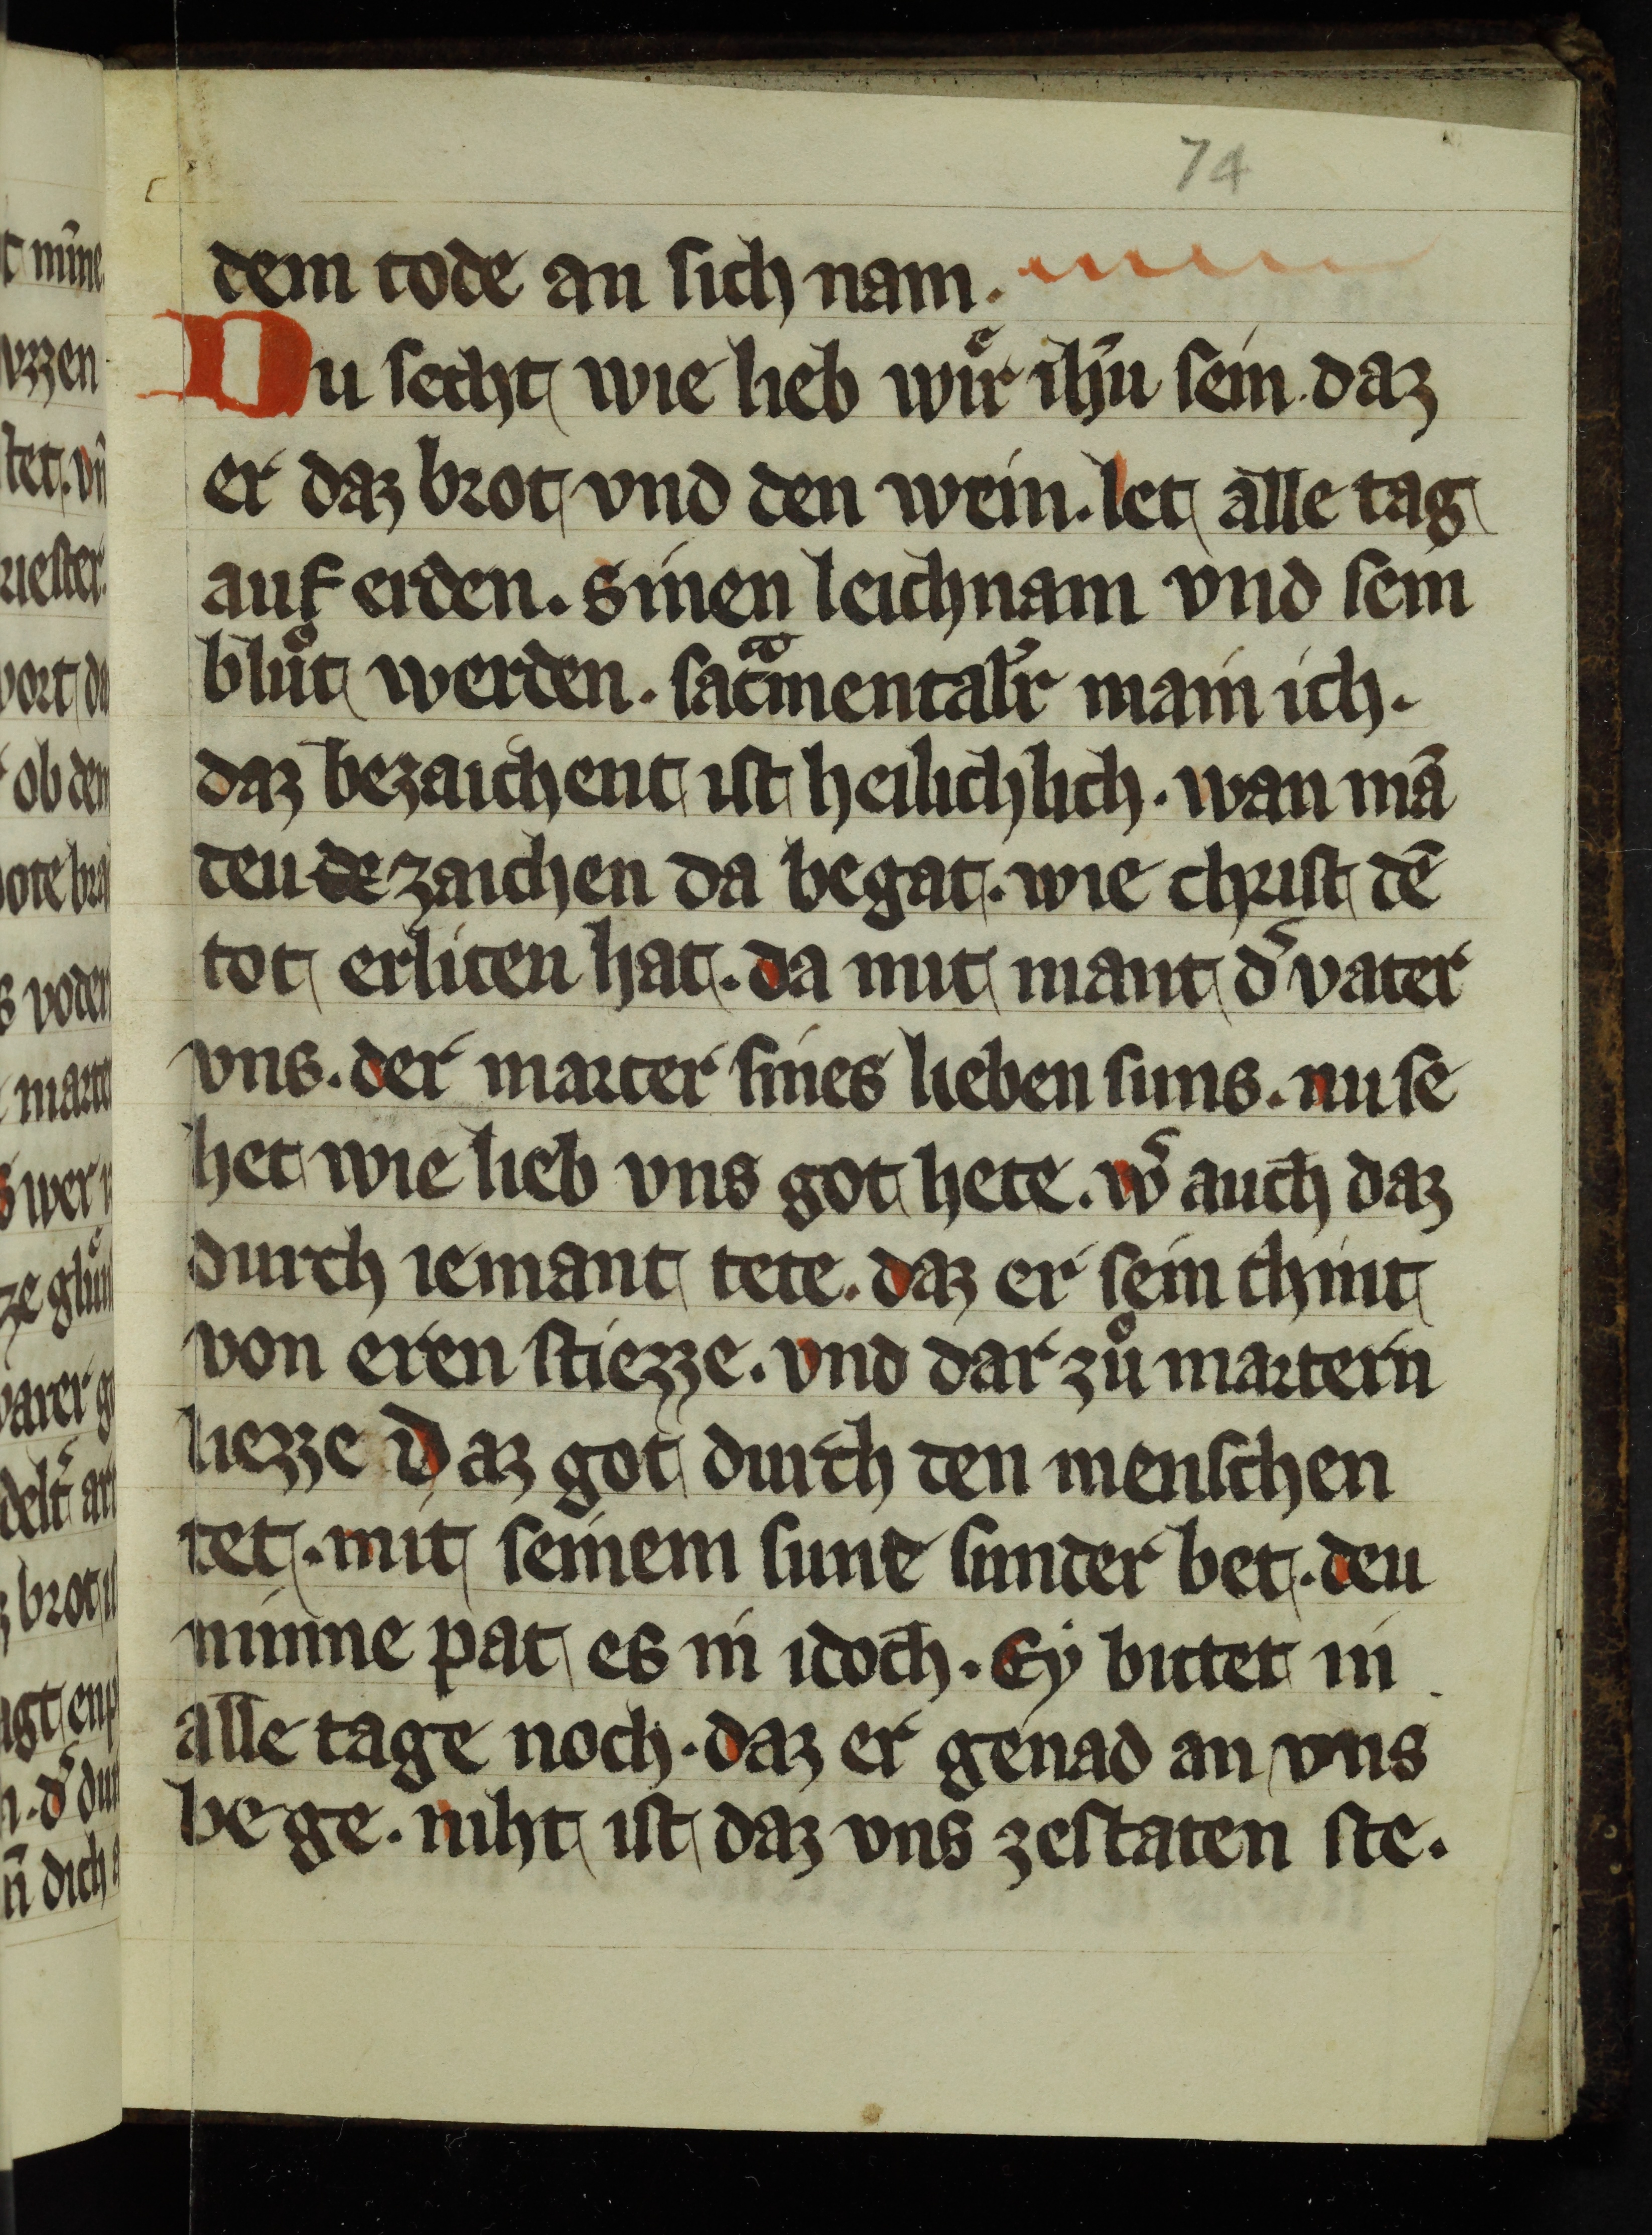 74
dem tode an sich nam.
Du secht wie lieb wuͤr ihū sein. daz
er daz brot vnd den wein. let alle tag
auf erden. Sinen leichnam vnd sein
bluͦt werden. sacͣmentalir main ich.
daz bezaichent ist heilichlich. wan mā
deu de zaichen da begat. wie christ dē
tot erliten hat. da mit mant d͛ vater
vns. der marter sines lieben suns. nu se
het wie lieb vns got hete. w͛ auch daz
durch iemant tete. daz er sein chint
von eren stiezze. vnd dar zuͦ martern
liezze Daz got durch den menschen
tet. mit seinem sune sunder bet. deu
minne pat es in idoch. Ey bittet in
alle tage noch. daz er genad an vns
be ge. niht ist daz vns zestaten ste.